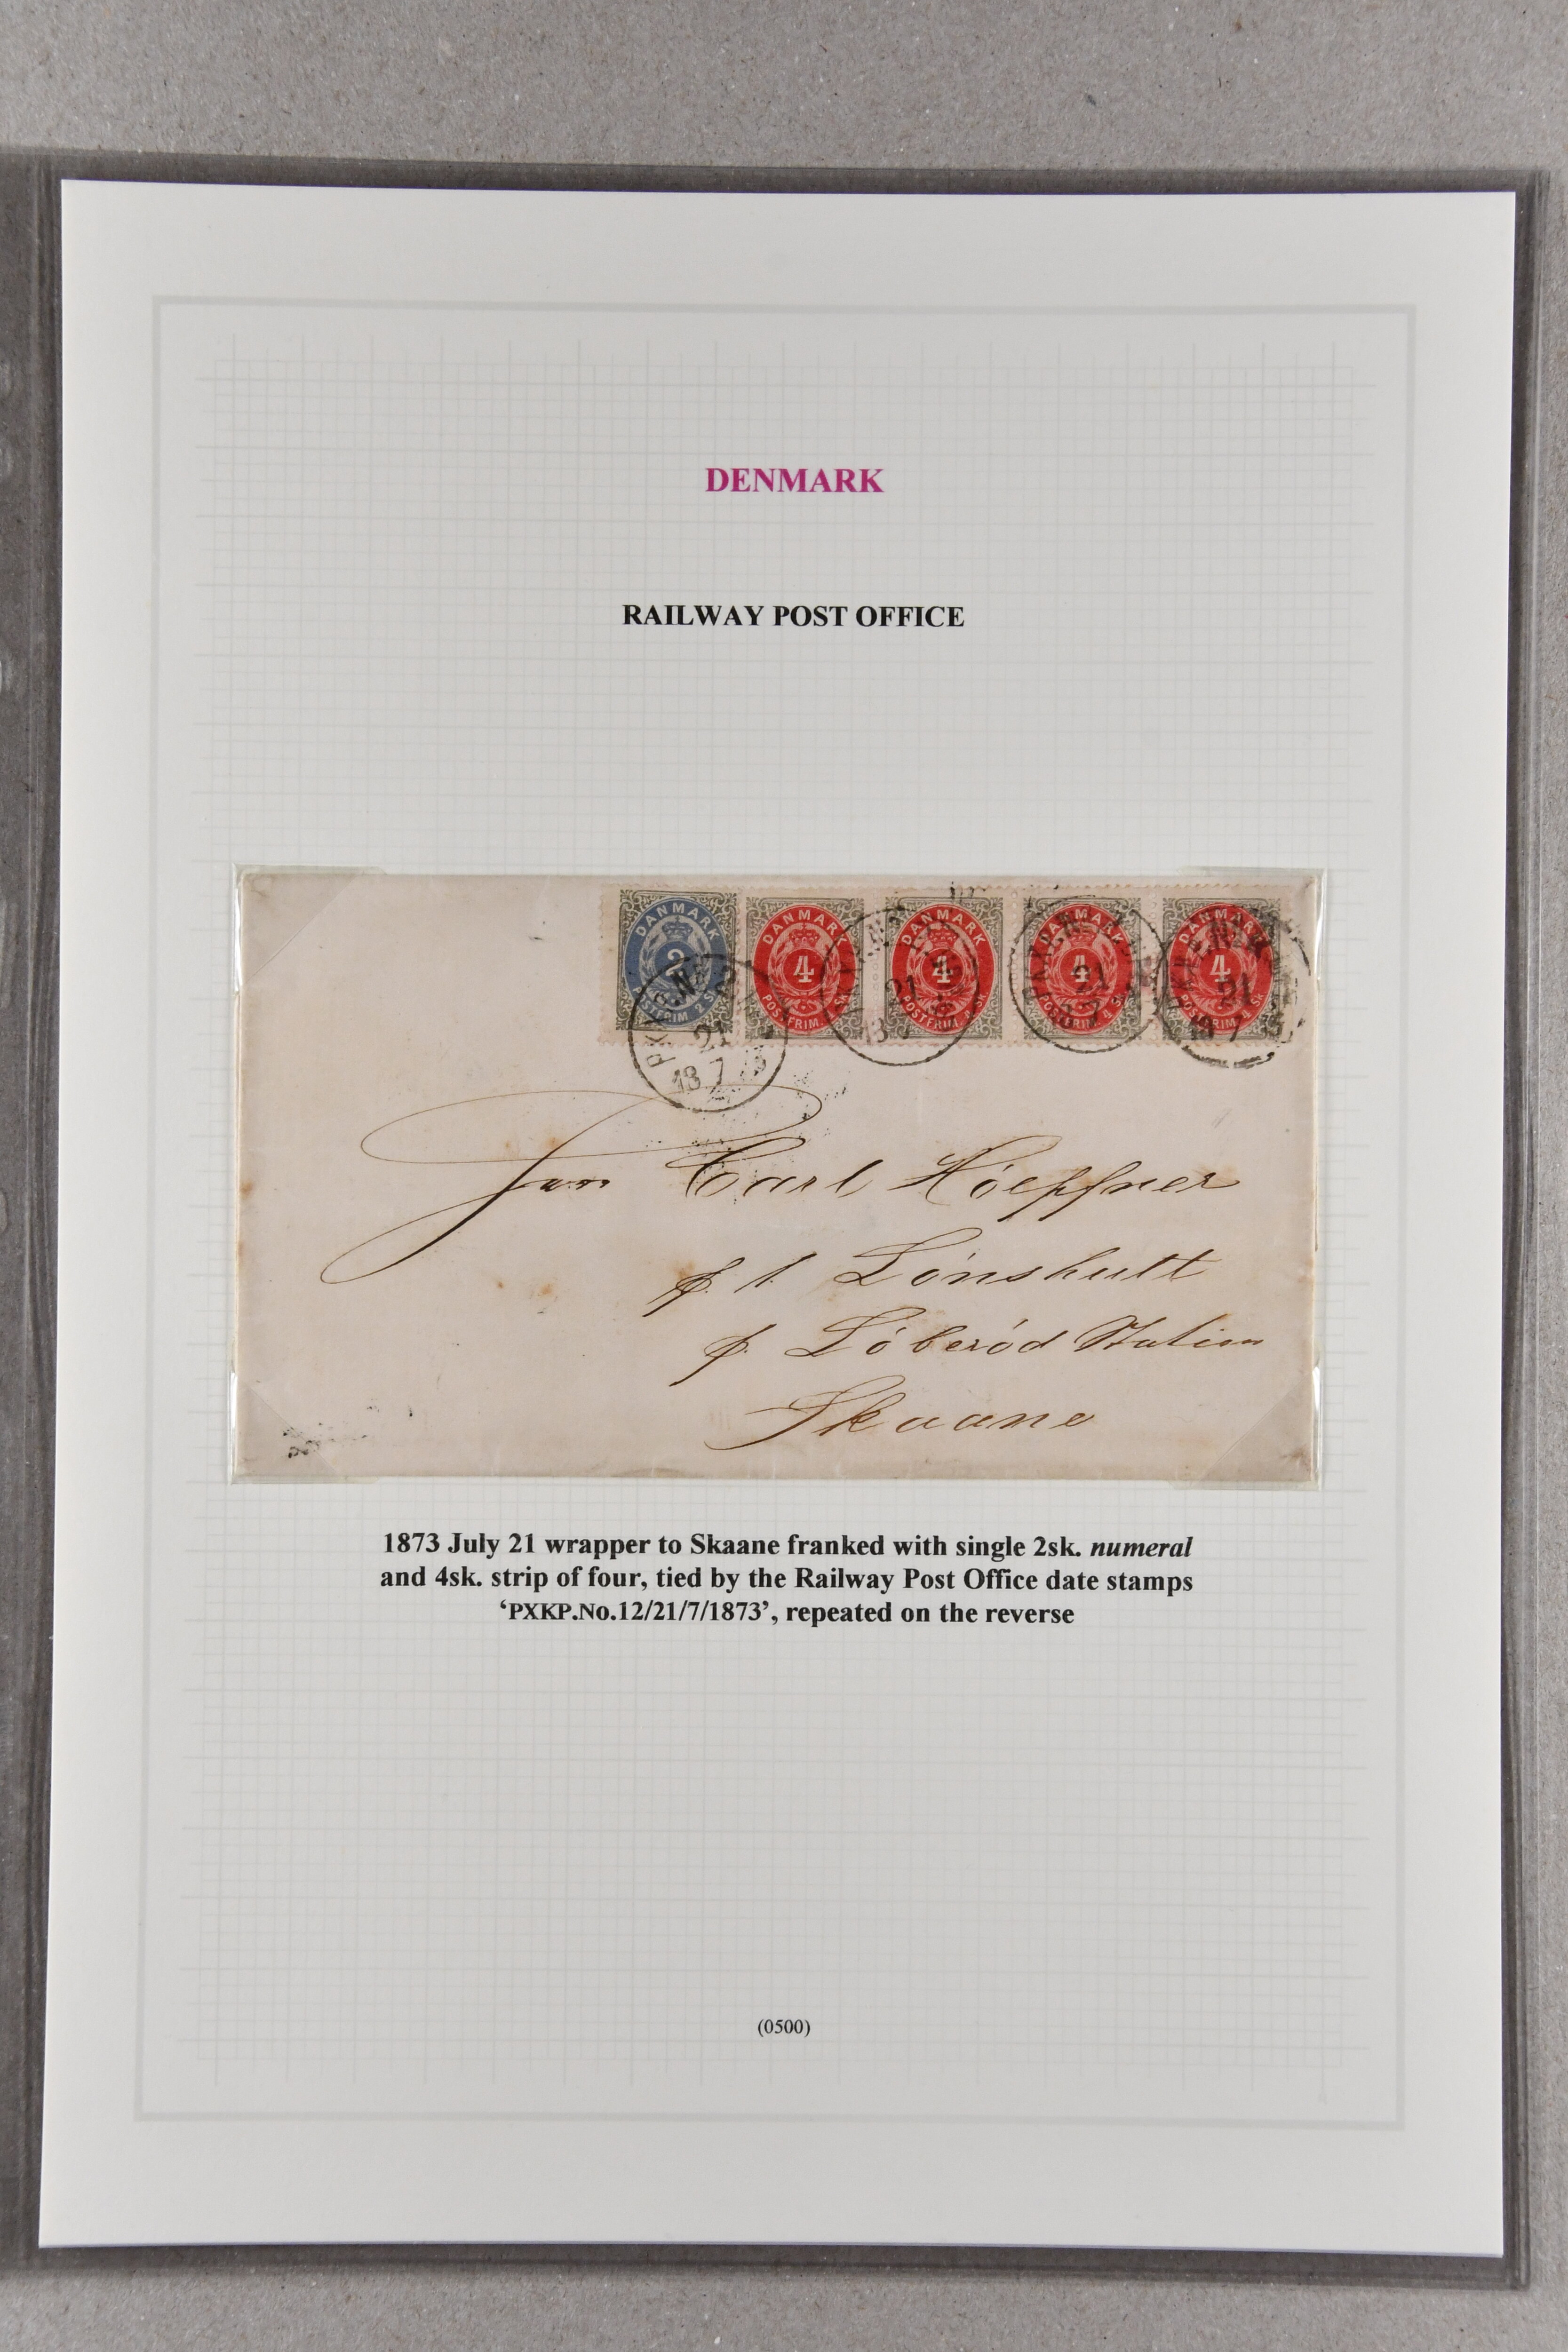 DENMARK
RAILWAY POST OFFICE
DANMARK DANMARK DANMARK DANMARK DANMARK
2 4 4 4 4
POSTFRIM. 2 SK POSTFRIM. 4 SK POSTFRIM. 4 SK POSTFRIM. 4 SK POSTFRIM. 4 SK
21 21 21 21
18 7 73
Carl Höepfner
p. t. Lönshult
p. Löberöd Station
Skaane
1873 July 21 wrapper to Skaane franked with single 2sk. numeral
and 4sk. strip of four, tied by the Railway Post Office date stamps
‘PXKP.No.12/21/7/1873’, repeated on the reverse
(0500)